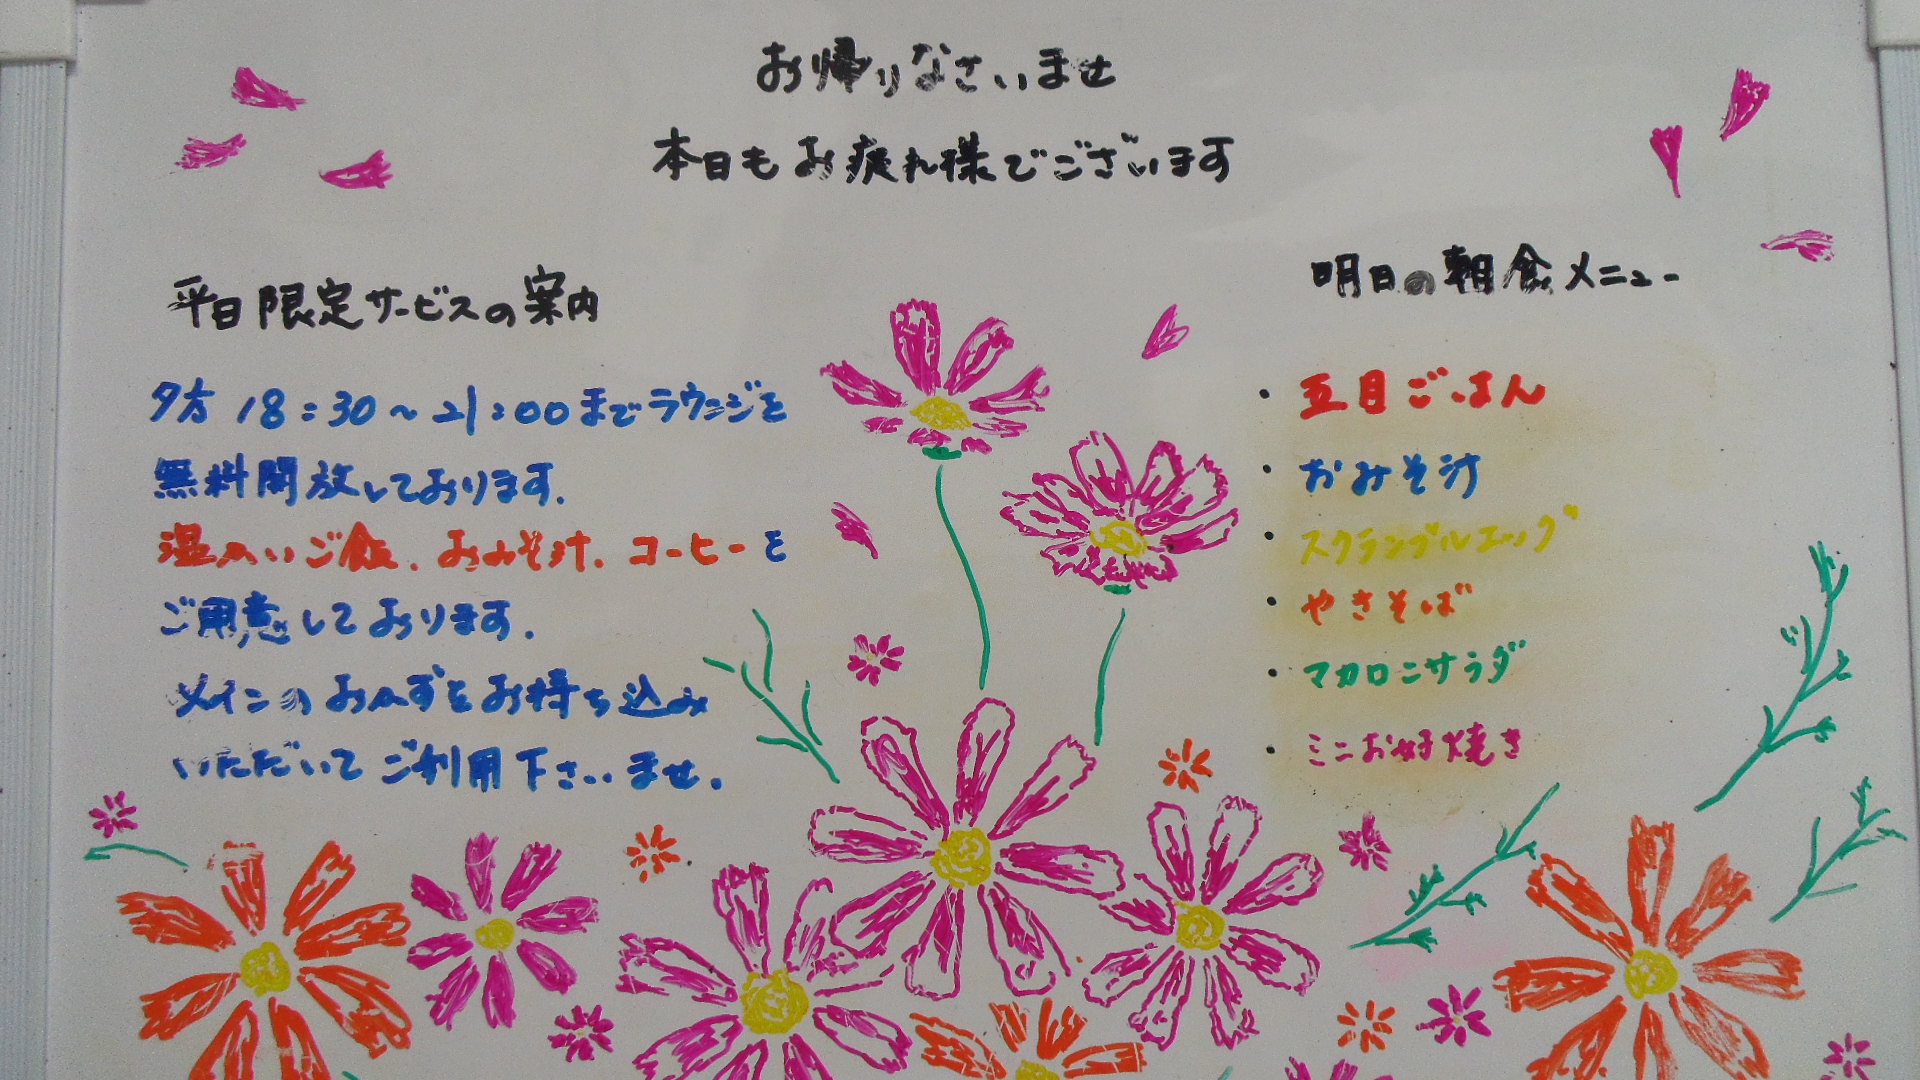 お帰りなさいませ
本日もお疲れ様でございます
平日限定サービスの案内
夕方 18:30～21:00までラウンジを
無料開放しております.
温かいご飯、おみそ汁、コーヒーを
ご用意しております.
メインのおかずをお持ち込み
いただいてご利用下さいませ.
明日の朝食メニュー
・五目ごはん
・おみそ汁
・スクランブルエッグ
・やきそば
・マカロニサラダ
・ミニお好焼き